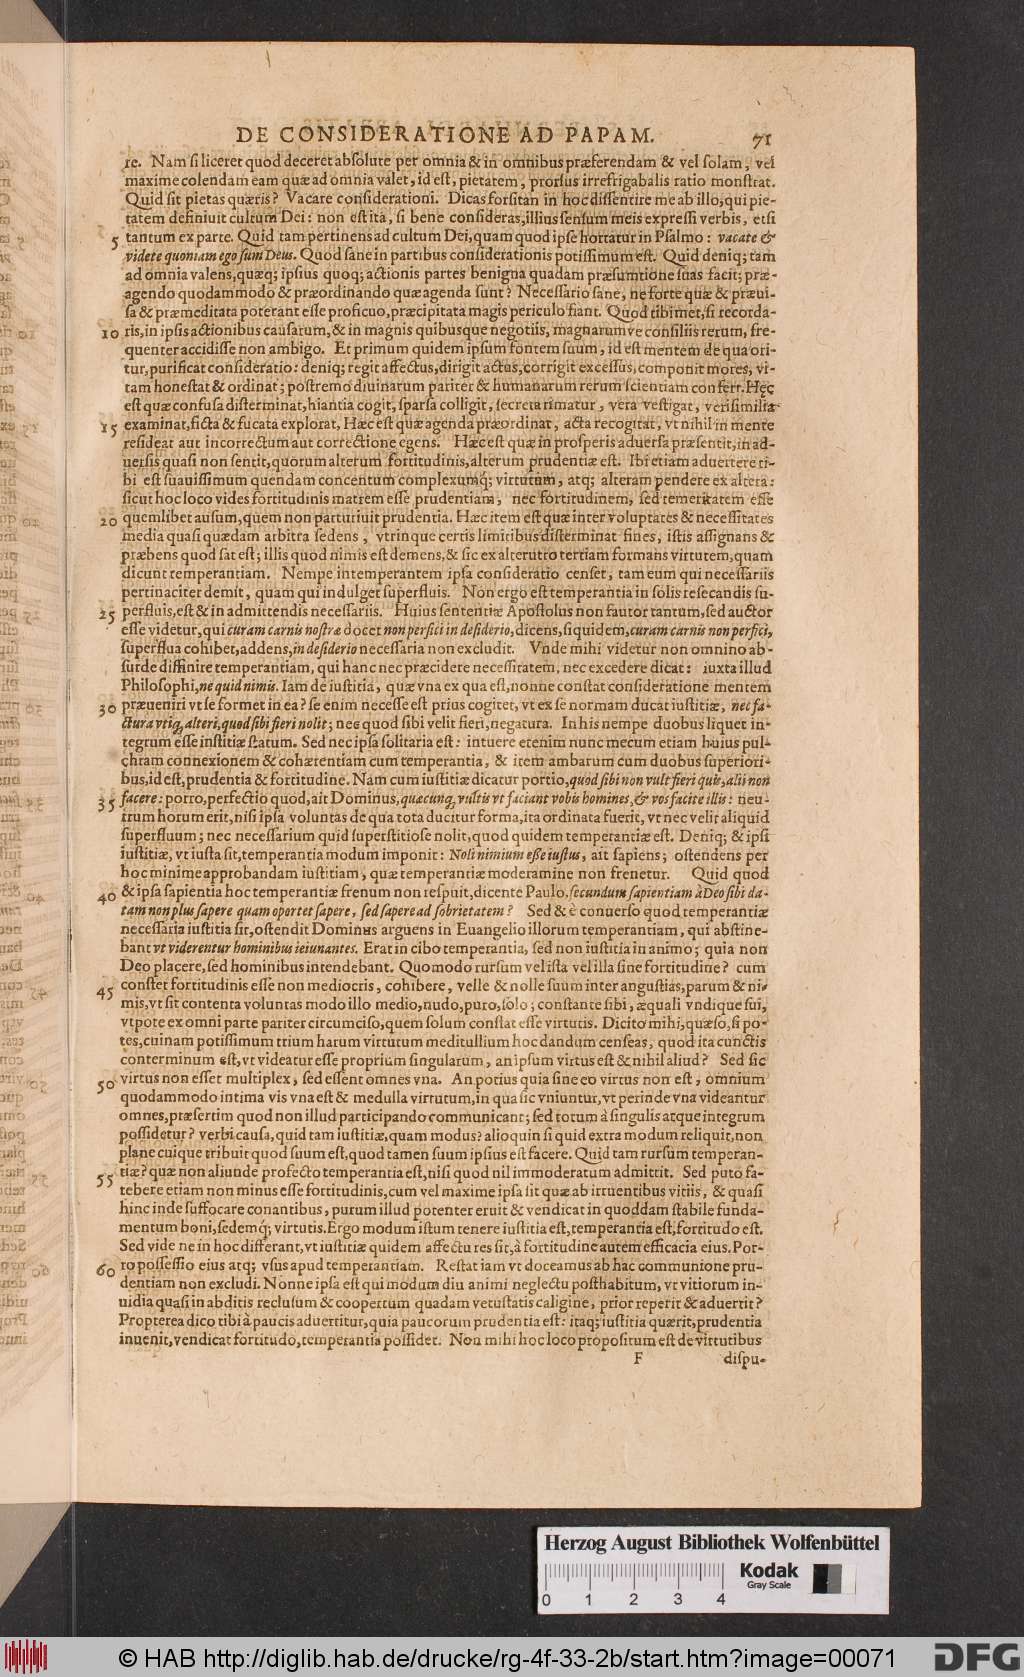 DE CONSIDERATIONE AD PAPAM. 71
re. Nam si liceret quod deceret absolute per omnia & in omnibus præferendam & vel solam, vel
maxime colendam eam quæ ad omnia valet, id est, pietatem, prorsus irrefrigabalis ratio monstrat.
Quid sit pietas quæris? Vacare considerationi. Dicas forsitan in hoc dissentire me ab illo, qui pie-
tatem definiuit cultum Dei: non est ita, si bene consideras, illius sensum meis expressi verbis, etsi
5 tantum ex parte. Quid tam pertinens ad cultum Dei, quam quod ipse hortatur in Psalmo: vacate &
videte quoniam ego sum Deus. Quod sane in partibus considerationis potissimum est. Quid deniq; tam
ad omnia valens, quæq; ipsius quoq; actionis partes benigna quadam præsumtione suas facit; præ-
agendo quodammodo & præordinando quæ agenda sunt? Necessario sane, ne forte quæ & præui-
sa & præmeditata poterant esse proficuo, præcipitata magis periculo fiant. Quod tibi met, si recorda-
10 ris, in ipsis actionibus causarum, & in magnis quibusque negotiis, magnarumve consiliis rerum, fre-
quenter accidisse non ambigo. Et primum quidem ipsum fontem suum, id est mentem de qua ori-
tur, purificat consideratio: deniq; regit affectus, dirigit actus, corrigit excessus, componit mores, vi-
tam honestat & ordinat; postremo diuinarum pariter & humanarum rerum scientiam confert. Hęc
est quæ confusa disterminat, hiantia cogit, sparsa colligit, secreta rimatur, vera vestigat, verisimilia
15 examinat, ficta & fucata explorat, Hæc est quæ agenda præordinat, acta recogitat, vt nihil in mente
resideat aut incorrectum aut correctione egens. Hæc est quæ in prosperis aduersa præsentit, in ad-
uersis quasi non sentit, quorum alterum fortitudinis, alterum prudentiæ est. Ibi etiam aduertere ti-
bi est suauissimum quendam concentum complexumq; virtutum, atq; alteram pendere ex altera:
sicut hoc loco vides fortitudinis matrem esse prudentiam, nec fortitudinem, sed temeritatem esse
20 quemlibet ausum, quem non parturiuit prudentia. Hæc item est quæ inter voluptates & necessitates
media quasi quædam arbitra sedens, vtrinque certis limitibus disterminat fines, istis assignans &
præbens quod sat est; illis quod nimis est demens, & sic ex alterutro tertiam formans virtutem, quam
dicunt temperantiam. Nempe intemperantem ipsa consideratio censet, tam eum qui necessariis
pertinaciter demit, quam qui indulget superfluis. Non ergo est temperantia in solis resecandis su-
25 perfluis, est & in admittendis necessariis. Huius sententiæ Apostolus non fautor tantum, sed auctor
esse videtur, qui curam carnis nostræ docet non perfici in desiderio, dicens, siquidem, curam carnis non perfici,
superflua cohibet, addens, in desiderio necessaria non excludit. Vnde mihi videtur non omnino ab-
surde diffinire temperantiam, qui hanc nec præcidere necessitatem, nec excedere dicat: iuxta illud
Philosophi, ne quid nimis. Iam de iustitia, quæ vna ex qua est, nonne constat consideratione mentem
30 præueniri vt se formet in ea? se enim necesse est prius cogitet, vt ex se normam ducat iustitiæ, nec fa-
ctura vtiq, alteri, quod sibi fieri nolit; nec quod sibi velit fieri, negatura. In his nempe duobus liquet in-
tegrum esse iustitiæ statum. Sed nec ipsa solitaria est: intuere etenim nunc mecum etiam huius pul-
chram connexionem & cohærentiam cum temperantia, & item ambarum cum duobus superiori-
bus, id est, prudentia & fortitudine. Nam cum iustitiæ dicatur portio, quod sibi non vult fieri quis, alii non
35 facere: porro, perfectio quod, ait Dominus, quæcunq, vultis vt faciant vobis homines, & vos facite illis: neu-
trum horum erit, nisi ipsa voluntas de qua tota ducitur forma, ita ordinata fuerit, vt nec velit aliquid
superfluum; nec necessarium quid superstitiose nolit, quod quidem temperantiæ est. Deniq; & ipsi
iustitiæ, vt iusta sit, temperantia modum imponit: Noli nimium esse iustus, ait sapiens; ostendens per
hoc minime approbandam iustitiam, quæ temperantiæ moderamine non frenetur. Quid quod
40 & ipsa sapientia hoc temperantiæ frenum non respuit, dicente Paulo, secundum sapientiam à Deo sibi da-
tam non plus sapere quam oportet sapere, sed sapere ad sobrietatem? Sed & è conuerso quod temperantiæ
necessaria iustitia sit, ostendit Dominus arguens in Euangelio illorum temperantiam, qui abstine-
bant vt viderentur hominibus ieiunantes. Erat in cibo temperantia, sed non iustitia in animo; quia non
Deo placere, sed hominibus intendebant. Quomodo rursum vel ista vel illa sine fortitudine? cum
45 constet fortitudinis esse non mediocris, cohibere, velle & nolle suum inter angustias, parum & ni-
mis, vt sit contenta voluntas modo illo medio, nudo, puro, solo; constante sibi, æquali vndique sui,
vtpote ex omni parte pariter circumciso, quem solum constat esse virtutis. Dicito mihi, quæso, si po-
tes, cuinam potissimum trium harum virtutum meditullium hoc dandum censeas, quod ita cunctis
conterminum est, vt videatur esse proprium singularum, an ipsum virtus est & nihil aliud? Sed sic
50 virtus non esset multiplex, sed essent omnes vna. An potius quia sine eo virtus non est, omnium
quodammodo intima vis vna est & medulla virtutum, in qua sic vniuntur, vt perinde vna videantur
omnes, præsertim quod non illud participando communicant; sed totum à singulis atque integrum
possidetur? verbi causa, quid tam iustitiæ, quam modus? alioquin si quid extra modum reliquit, non
plane cuique tribuit quod suum est, quod tamen suum ipsius est facere. Quid tam rursum temperan-
55 tiæ? quæ non aliunde profecto temperantia est, nisi quod nil immoderatum admittit. Sed puto fa-
tebere etiam non minus esse fortitudinis, cum vel maxime ipsa sit quæ ab irruentibus vitiis, & quasi
hinc inde suffocare conantibus, purum illud potenter eruit & vendicat in quoddam stabile funda-
mentum boni, sedemq; virtutis. Ergo modum istum tenere iustitia est, temperantia est, fortitudo est.
Sed vide ne in hoc differant, vt iustitiæ quidem affectu res sit, à fortitudine autem efficacia eius. Por-
60 ro possessio eius atq; vsus apud temperantiam. Restat iam vt doceamus ab hac communione pru-
dentiam non excludi. Nonne ipsa est qui modum diu animi neglectu posthabitum, vt vitiorum in-
uidia quasi in abditis reclusum & coopertum quadam vetustatis caligine, prior reperit & aduertit?
Propterea dico tibi à paucis aduertitur, quia paucorum prudentia est: itaq; iustitia quærit, prudentia
inuenit, vendicat fortitudo, temperantia possidet. Non mihi hoc loco propositum est de virtutibus
F dispu-
Herzog August Bibliothek Wolfenbüttel
Kodak
Gray Scale
0 1 2 3 4
© HAB http://diglib.hab.de/drucke/rg-4f-33-2b/start.htm?image=00071
DFG